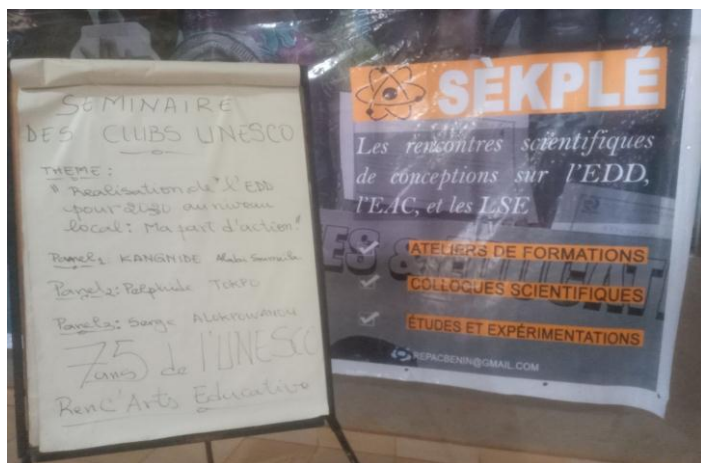 SEMINAIRE
DES CLUBS UNESCO
THEME:
"Realisation de l'EDD
pour 2030 au niveau
local: Ma part d'action"
Panel1 KANGNIDE
Panel2: Perpétude TOKPO
Panel3: Serge
75 ans de l'UNESCO
Renc'Arts Educative
SÈKPLÉ
Les rencontres scientifiques
de conceptions sur l'EDD,
l'EAC, et les LSE
ATELIERS DE FORMATIONS
COLLOQUES SCIENTIFIQUES
ÉTUDES ET EXPÉRIMENTATIONS
REPACBENIN@GMAIL.COM